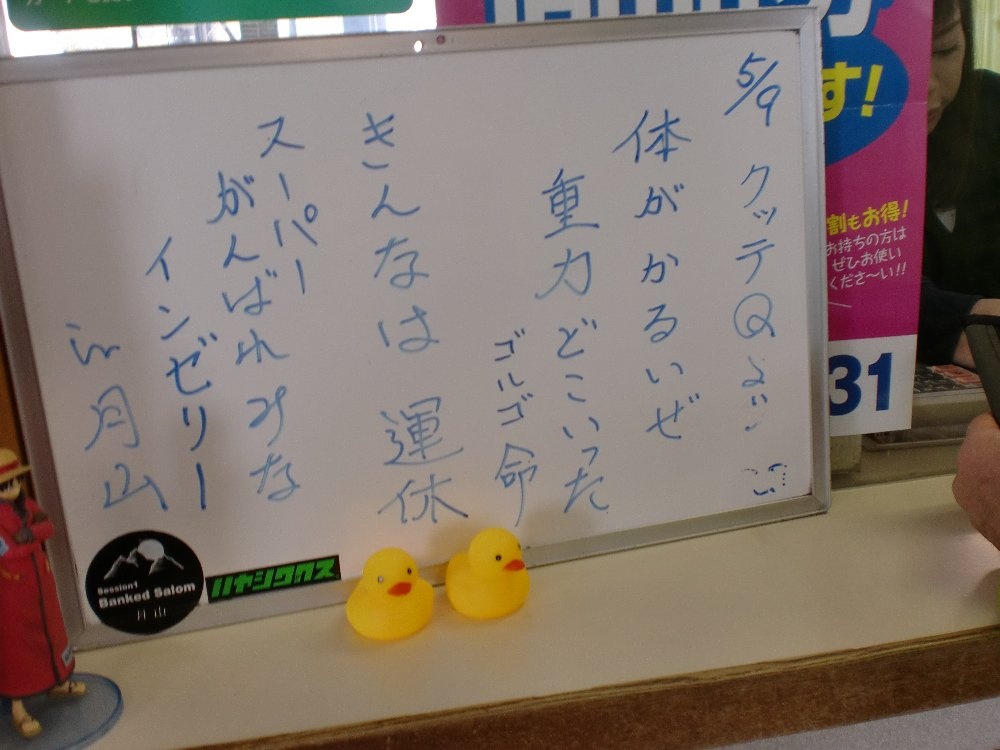 5/9 クッテQ
体がかるいぜ
重力どこいった
ゴルゴ命
きんなは 運休
スーパー
がんばれみな
インゼリー
in 月山
Session1
Banked Salom
月山
ハヤシワクス
す!
割もお得!
お持ちの方は
ぜひお使い
くださ〜い!!
31